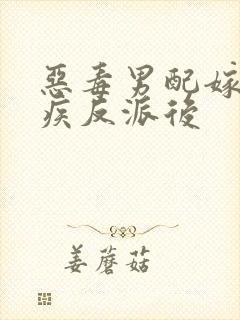 惡毒男配嫁
疾反派後
姜蘑菇